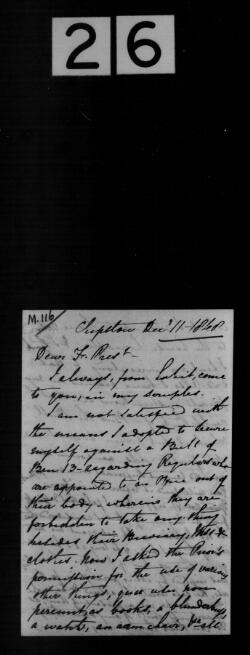 26
M.116
Dec. 11 - 1868
Dear Fr. Prest -
I always, from habit, come
to you, in my scruples.
I am not satisfied with
the means I adopted to secure
myself against a Bull of
Ben 13 - regarding Regulars who
are appointed to an office out of
their body, wherein they are
forbidden to take any thing
besides their Breviary, &
clothes. Now I asked the
permission for the use of various
other things, 
as books, a blunderbuss,
a watch, an arm chair,